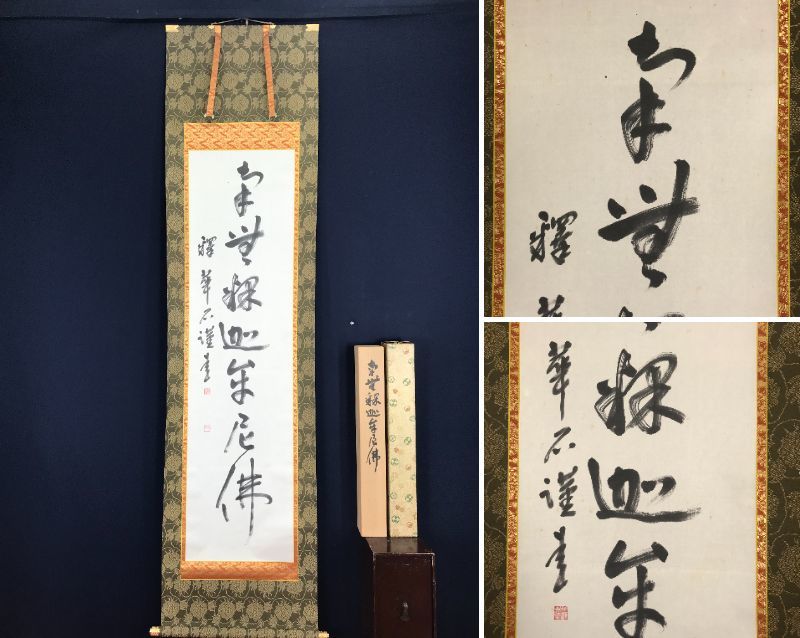 南無釋迦牟尼佛
釋華石謹書
南無釋迦牟尼佛
南無
釋
華石謹書
釋迦牟